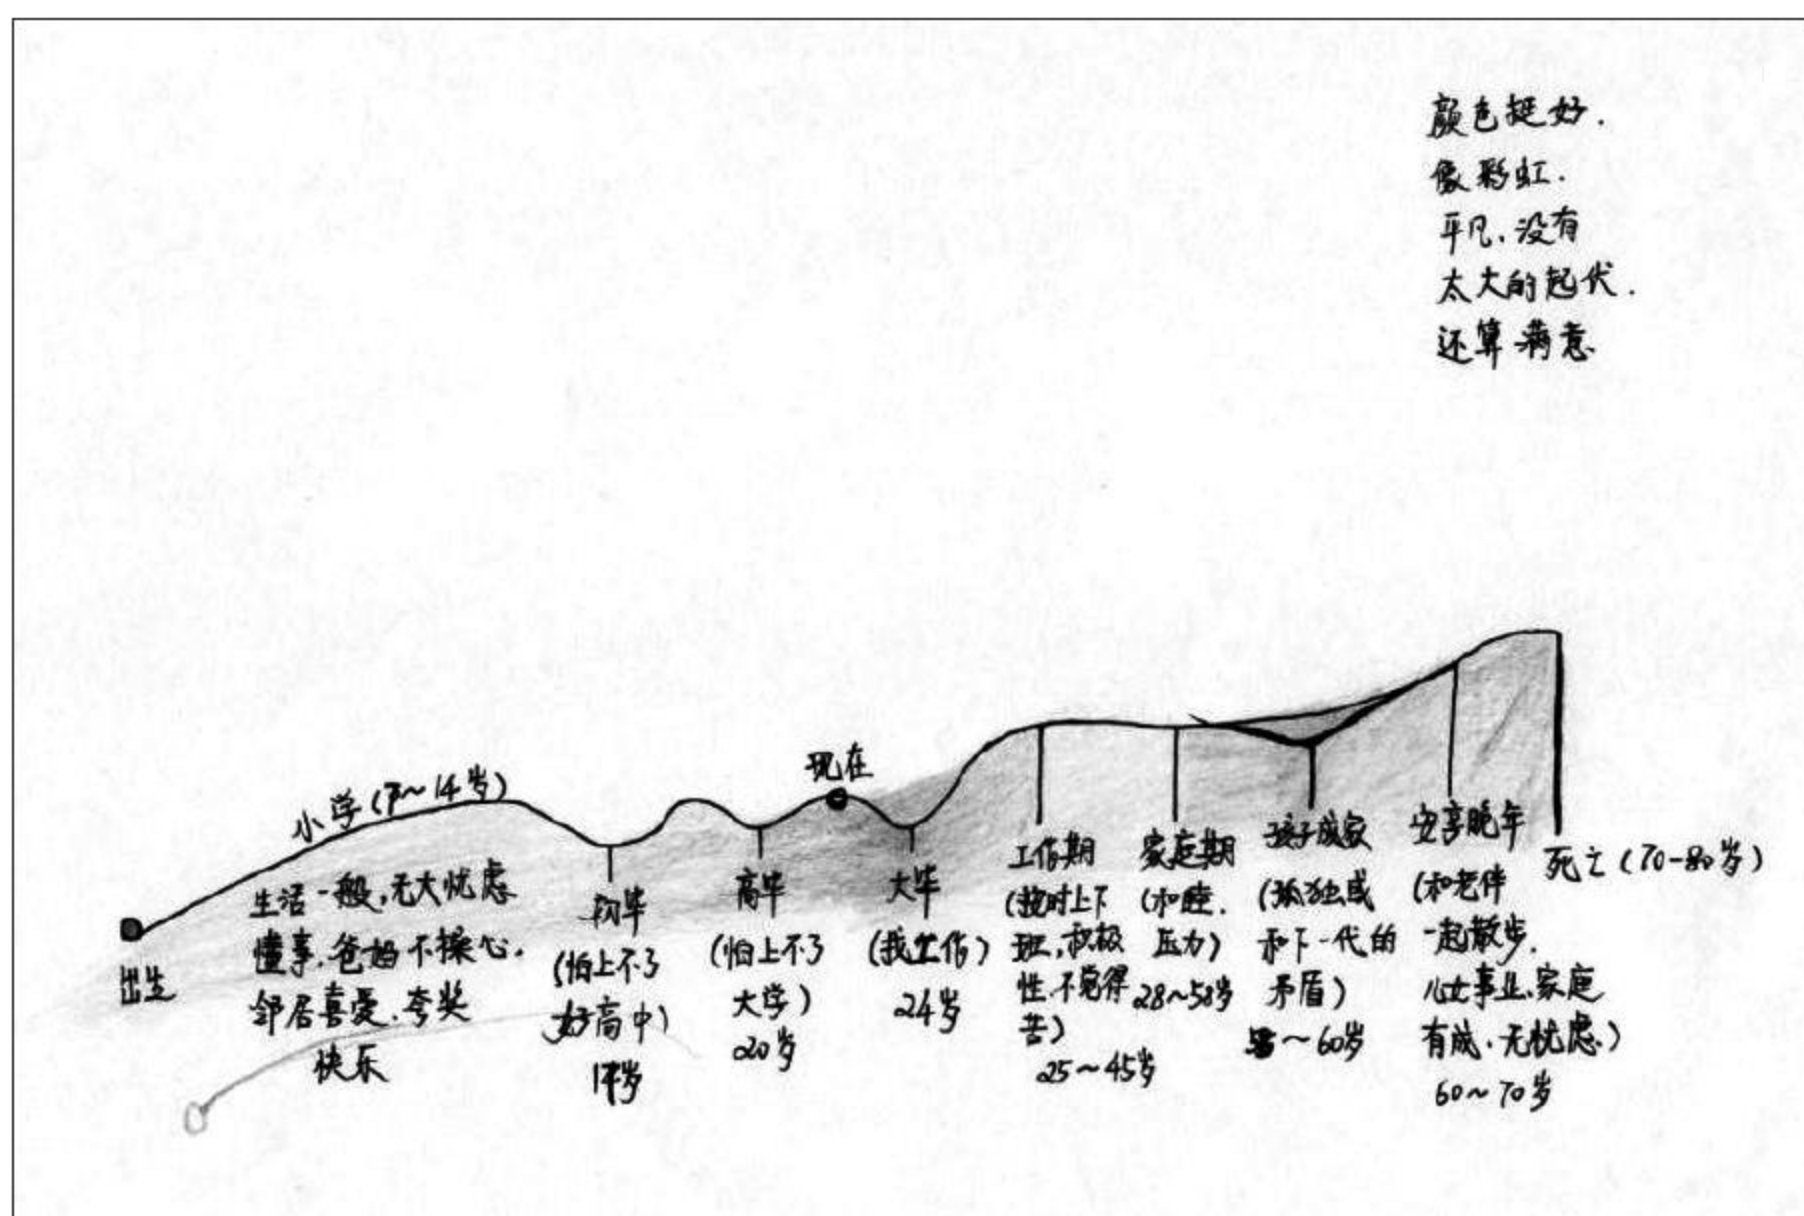 颜色挺好.
像彩虹.
平凡.没有
太大的起伏.
还算满意
现在
小学(7~14岁)
出生
生活一般,无大忧虑
懂事.爸妈不操心.
邻居喜爱.夸奖
快乐
初毕
(怕上不了
好高中)
17岁
高毕
(怕上不了
大学)
20岁
大毕
(找工作)
24岁
工作期
(按时上下
班,积极
性.不觉得
苦)
25~45岁
家庭期
(和睦.
压力)
28~58岁
孩子成家
(孤独或
和下一代的
矛盾)
~60岁
安享晚年
(和老伴
一起散步.
儿女事业.家庭
有成.无忧虑)
60~70岁
死亡(70-80岁)